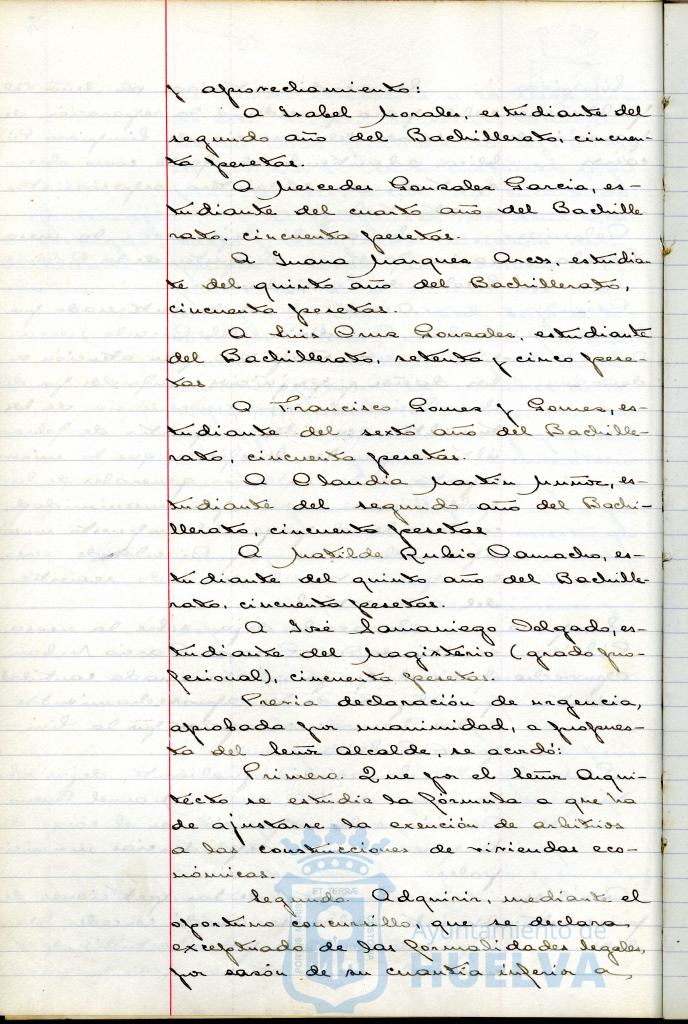 y aprovechamiento:
A Isabel Morales, estudiante del
segundo año del Bachillerato, cincuen-
ta pesetas.
A Mercedes Gonzalez Garcia, es-
tudiante del cuarto año del Bachille
rato, cincuenta pesetas.
A Juana Marquez Arcos, estudian
te del quinto año del Bachillerato,
cincuenta pesetas.
A Luis Cruz Gonzalez, estudiante
del Bachillerato, setenta y cinco pese-
tas
A Francisco Gomez y Gomez, es-
tudiante del sexto año del Bachille-
rato, cincuenta pesetas.
A Claudia Martin Muñoz, es-
tudiante del segundo año del Bachi-
llerato, cincuenta pesetas
A Matilde Rubio Camacho, es-
tudiante del quinto año del Bachille-
rato, cincuenta pesetas.
A José Samaniego Delgado, es-
tudiante del Magisterio (grado pro-
fesional), cincuenta pesetas.
Previa declaración de urgencia,
aprobada por unanimidad, a propues-
ta del Señor Alcalde, se acordó:
Primero. Que por el Señor Arqui-
tecto se estudie la fórmula a que ha
de ajustarse la exención de arbitrios
a las construcciones de viviendas eco-
nómicas.
Segundo. Adquirir, mediante el
oportuno concursillo, que se declara
exceptuado de las formalidades legales,
por razón de su cuantía inferior a
Ayuntamiento de
HUELVA